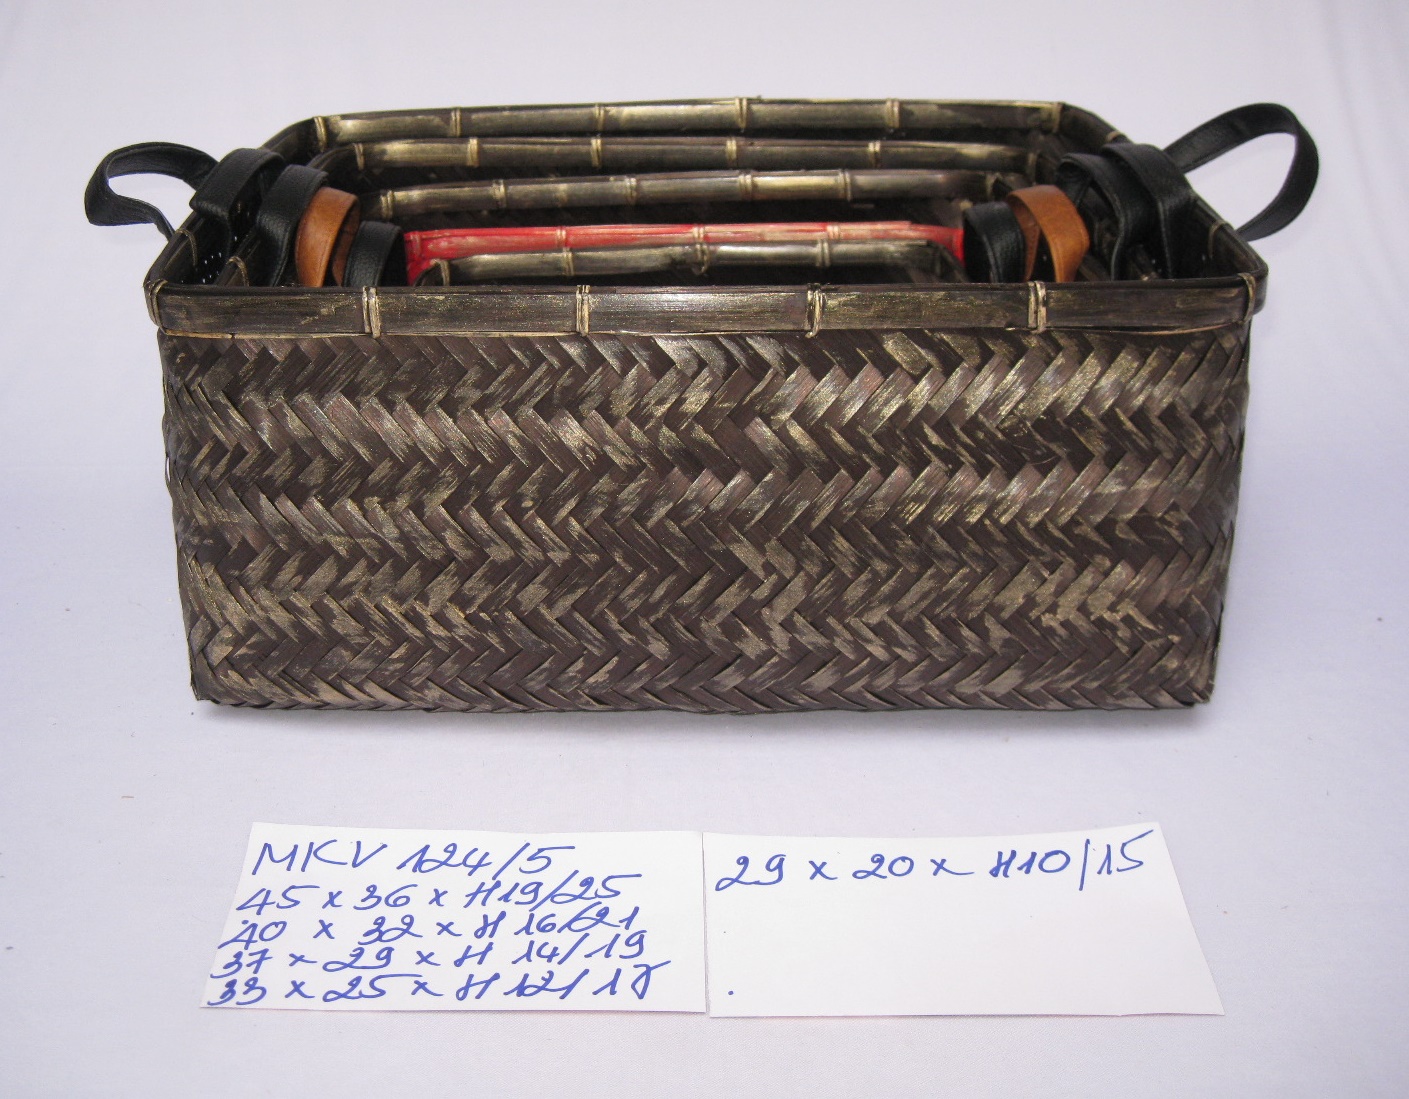 MKV 124/5
45 x 36 x H19/25
40 x 32 x H 16/21
37 x 29 x H 14/19
33 x 25 x H 12/
29 x 20 x H10/15